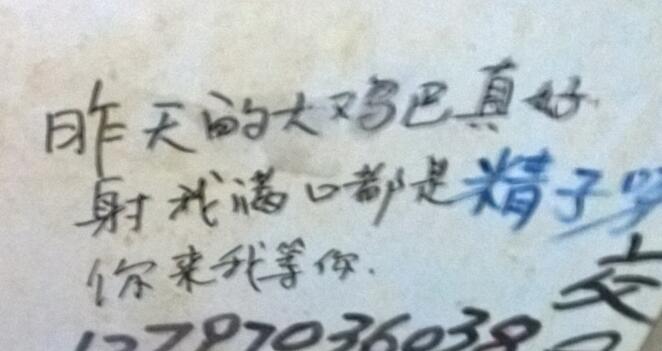 昨天的大鸡巴真好
射我满口都是精子
你来我等你.
交
13797036038